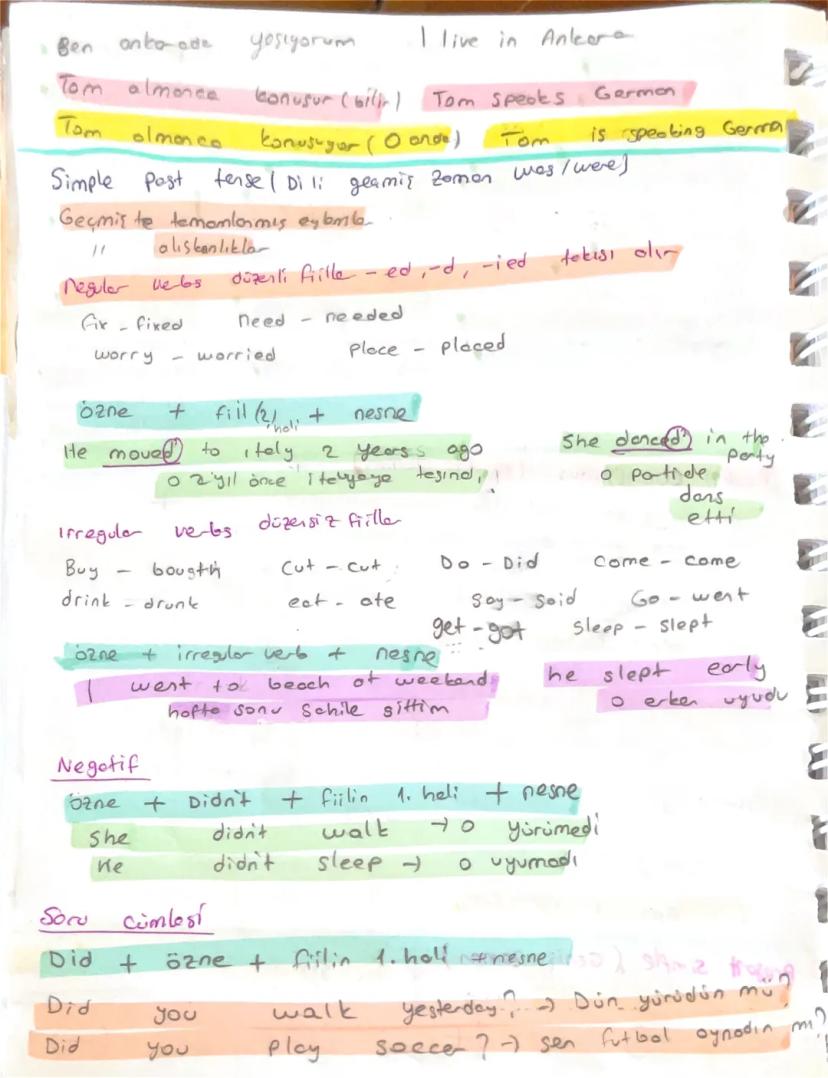 Ben ankarada yaşıyorum I live in Ankara
Tom almanca konuşur (bilir) Tom speaks German
Tom almanca konuşuyor (O anda) Tom is speaking Germa
Simple past tense (Di li geçmiş zaman was/were)
Geçmişte tamamlanmış eylemle
" alışkanlıkla
Regular verbs düzenli fiille -ed, -d, -ied takısı alır
fix - fixed need - needed
worry - worried place - placed
özne + fiil (2) hali + nesne
He moved to italy 2 years ago She danced in the party
O 2 yıl önce italyaya taşındı O partide dans etti
Irregular verbs düzensiz fiille
Buy - bougth cut - cut Do - Did come - come
drink - drunk eat - ate say - said Go - went
get - got sleep - slept
özne + irregular verb + nesne
I went to beach at weekend he slept early
hafta sonu sahile gittim O erken uyudu
Negatif
özne + Didn't + fiilin 1. hali + nesne
She didn't walk → O yürümedi
He didn't sleep → O uyumadı
Soru cümlesi
Did + özne + fiilin 1. hali + nesne
Did you walk yesterday? → Dün yürüdün mü?
Did you play soccer? → sen futbol oynadın mı?